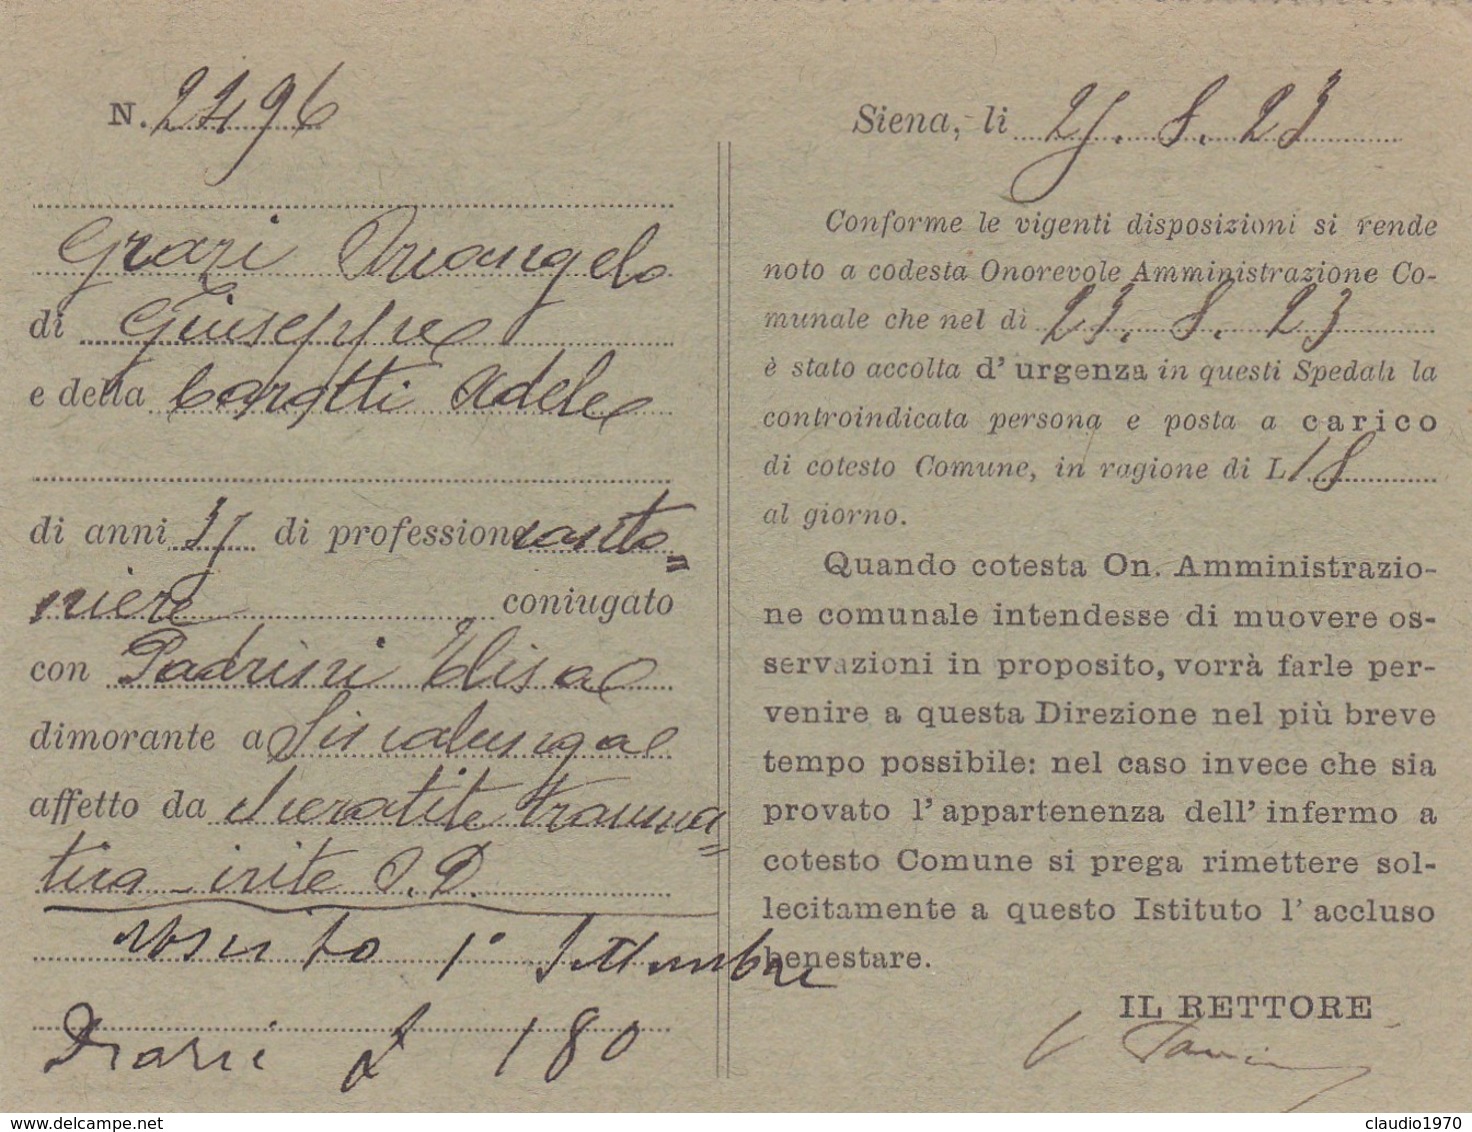 N. 2496
Grazi Arcangelo
di Giuseppe
e della Carotti Adele
di anni 37 di professione canto=
niere coniugato
con Padrini Elisa
dimorante a Sinalunga
affetto da cheratite trauma=
tica - irite O. D.
Uscito 1° Settembre
Diarie £ 180
Siena, li 25. 8. 23
Conforme le vigenti disposizioni si rende
noto a codesta Onorevole Amministrazione Co-
munale che nel dì 23. 8. 23
è stato accolta d' urgenza in questi Spedali la
controindicata persona e posta a carico
di cotesto Comune, in ragione di L 18
al giorno.
Quando cotesta On. Amministrazio-
ne comunale intendesse di muovere os-
servazioni in proposito, vorrà farle per-
venire a questa Direzione nel più breve
tempo possibile: nel caso invece che sia
provato l' appartenenza dell' infermo a
cotesto Comune si prega rimettere sol-
lecitamente a questo Istituto l' accluso
benestare.
IL RETTORE
delcampe.net
claudio1970